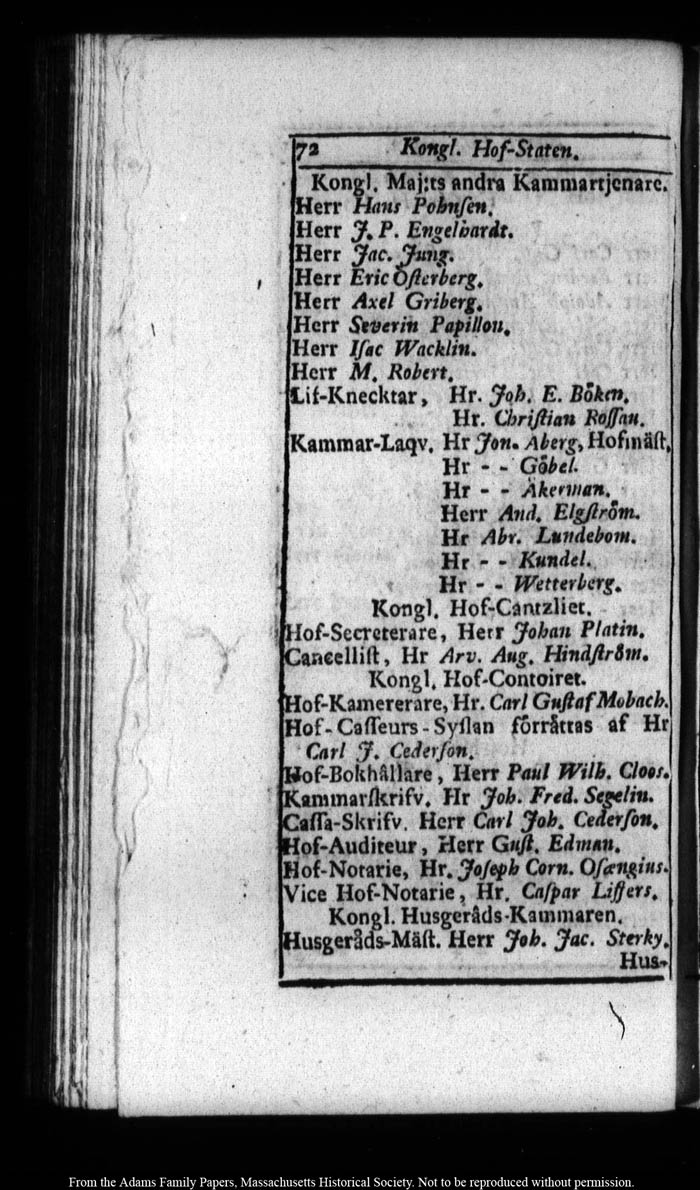 72 Kongl. Hof-Staten.
Kongl. Maj:ts andra Kammartjenare.
Herr Hans Pohnſen.
Herr J. P. Engelhardt.
Herr Jac. Jung.
Herr Eric Öſterberg.
Herr Axel Griberg.
Herr Severin Papillon.
Herr Iſac Wacklin.
Herr M. Robert.
Lif-Knecktar, Hr. Joh. E. Böken.
Hr. Chriſtian Roſſau.
Kammar-Laqv. Hr Jon. Aberg, Hofmäſt.
Hr - - Göbel.
Hr - - Åkerman.
Herr And. Elgſtröm.
Hr Abr. Lundebom.
Hr - - Kundel.
Hr - - Wetterberg.
Kongl. Hof-Cantzliet.
Hof-Secreterare, Herr Johan Platin.
Cancelliſt, Hr Arv. Aug. Hindſtröm.
Kongl. Hof-Contoiret.
Hof-Kamererare, Hr. Carl Guſtaf Mobach.
Hof-Caſſeurs-Syſlan förråttas af Hr
Carl J. Cederſon.
Hof-Bokhållare, Herr Paul Wilh. Cloos.
Kammarſkrifv. Hr Joh. Fred. Segelin.
Caſſa-Skrifv. Herr Carl Joh. Cederſon.
Hof-Auditeur, Herr Guſt. Edman.
Hof-Notarie, Hr. Joſeph Corn. Oſængius.
Vice Hof-Notarie, Hr. Caſpar Liſſers.
Kongl. Husgeråds-Kammaren.
Husgeråds-Mäſt. Herr Joh. Jac. Sterky.
Hus-
From the Adams Family Papers, Massachusetts Historical Society. Not to be reproduced without permission.